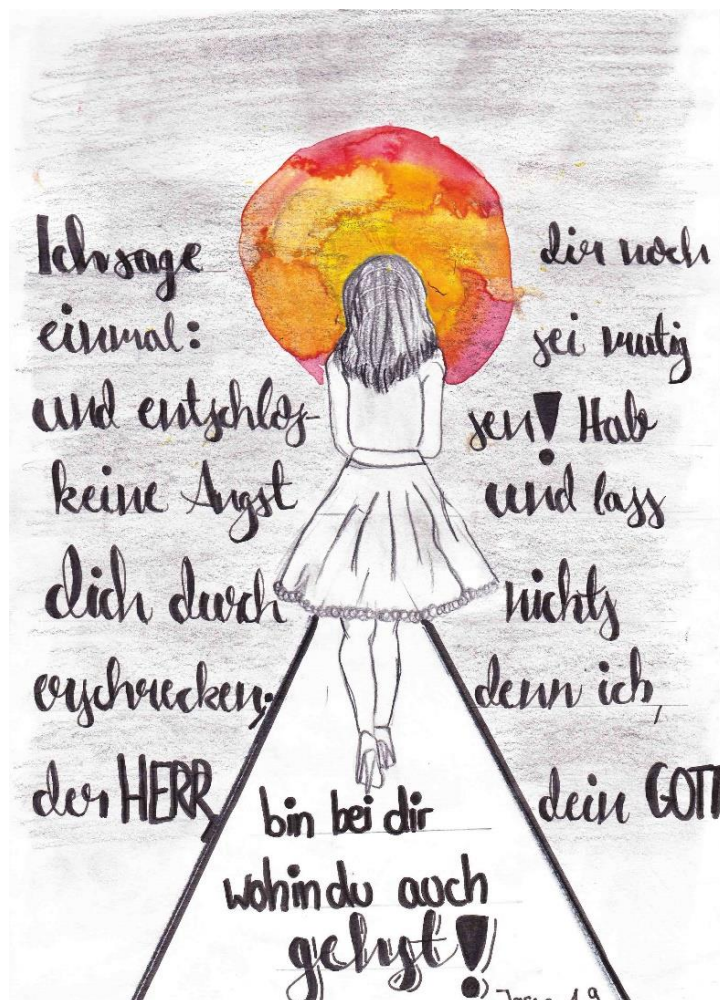 Ich sage dir noch
einmal: sei mutig
und entschlos- sen! Hab
keine Angst und lass
dich durch nichts
erschrecken; denn ich,
der HERR, dein GOTT
bin bei dir
wohin du auch
gehst!